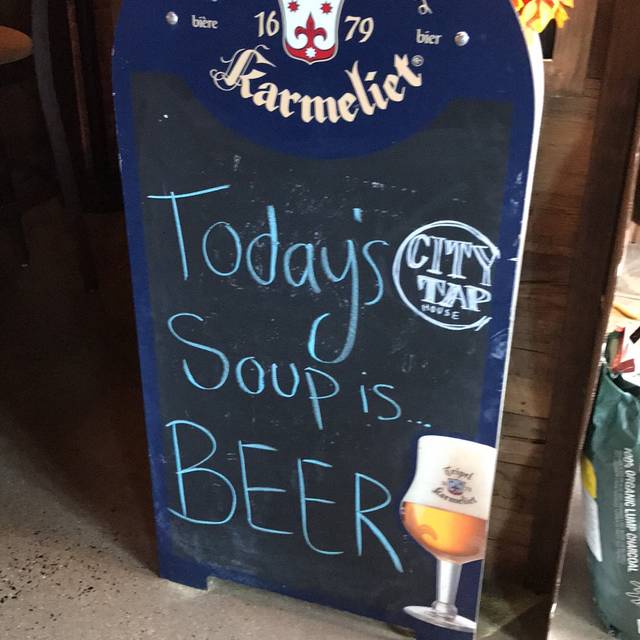 bière 1679 bier
Karmeliet®
Today's
CITY
TAP
HOUSE
Soup is...
BEER
Tripel
Karmeliet
100% ORGANIC LUMP CHARCOAL